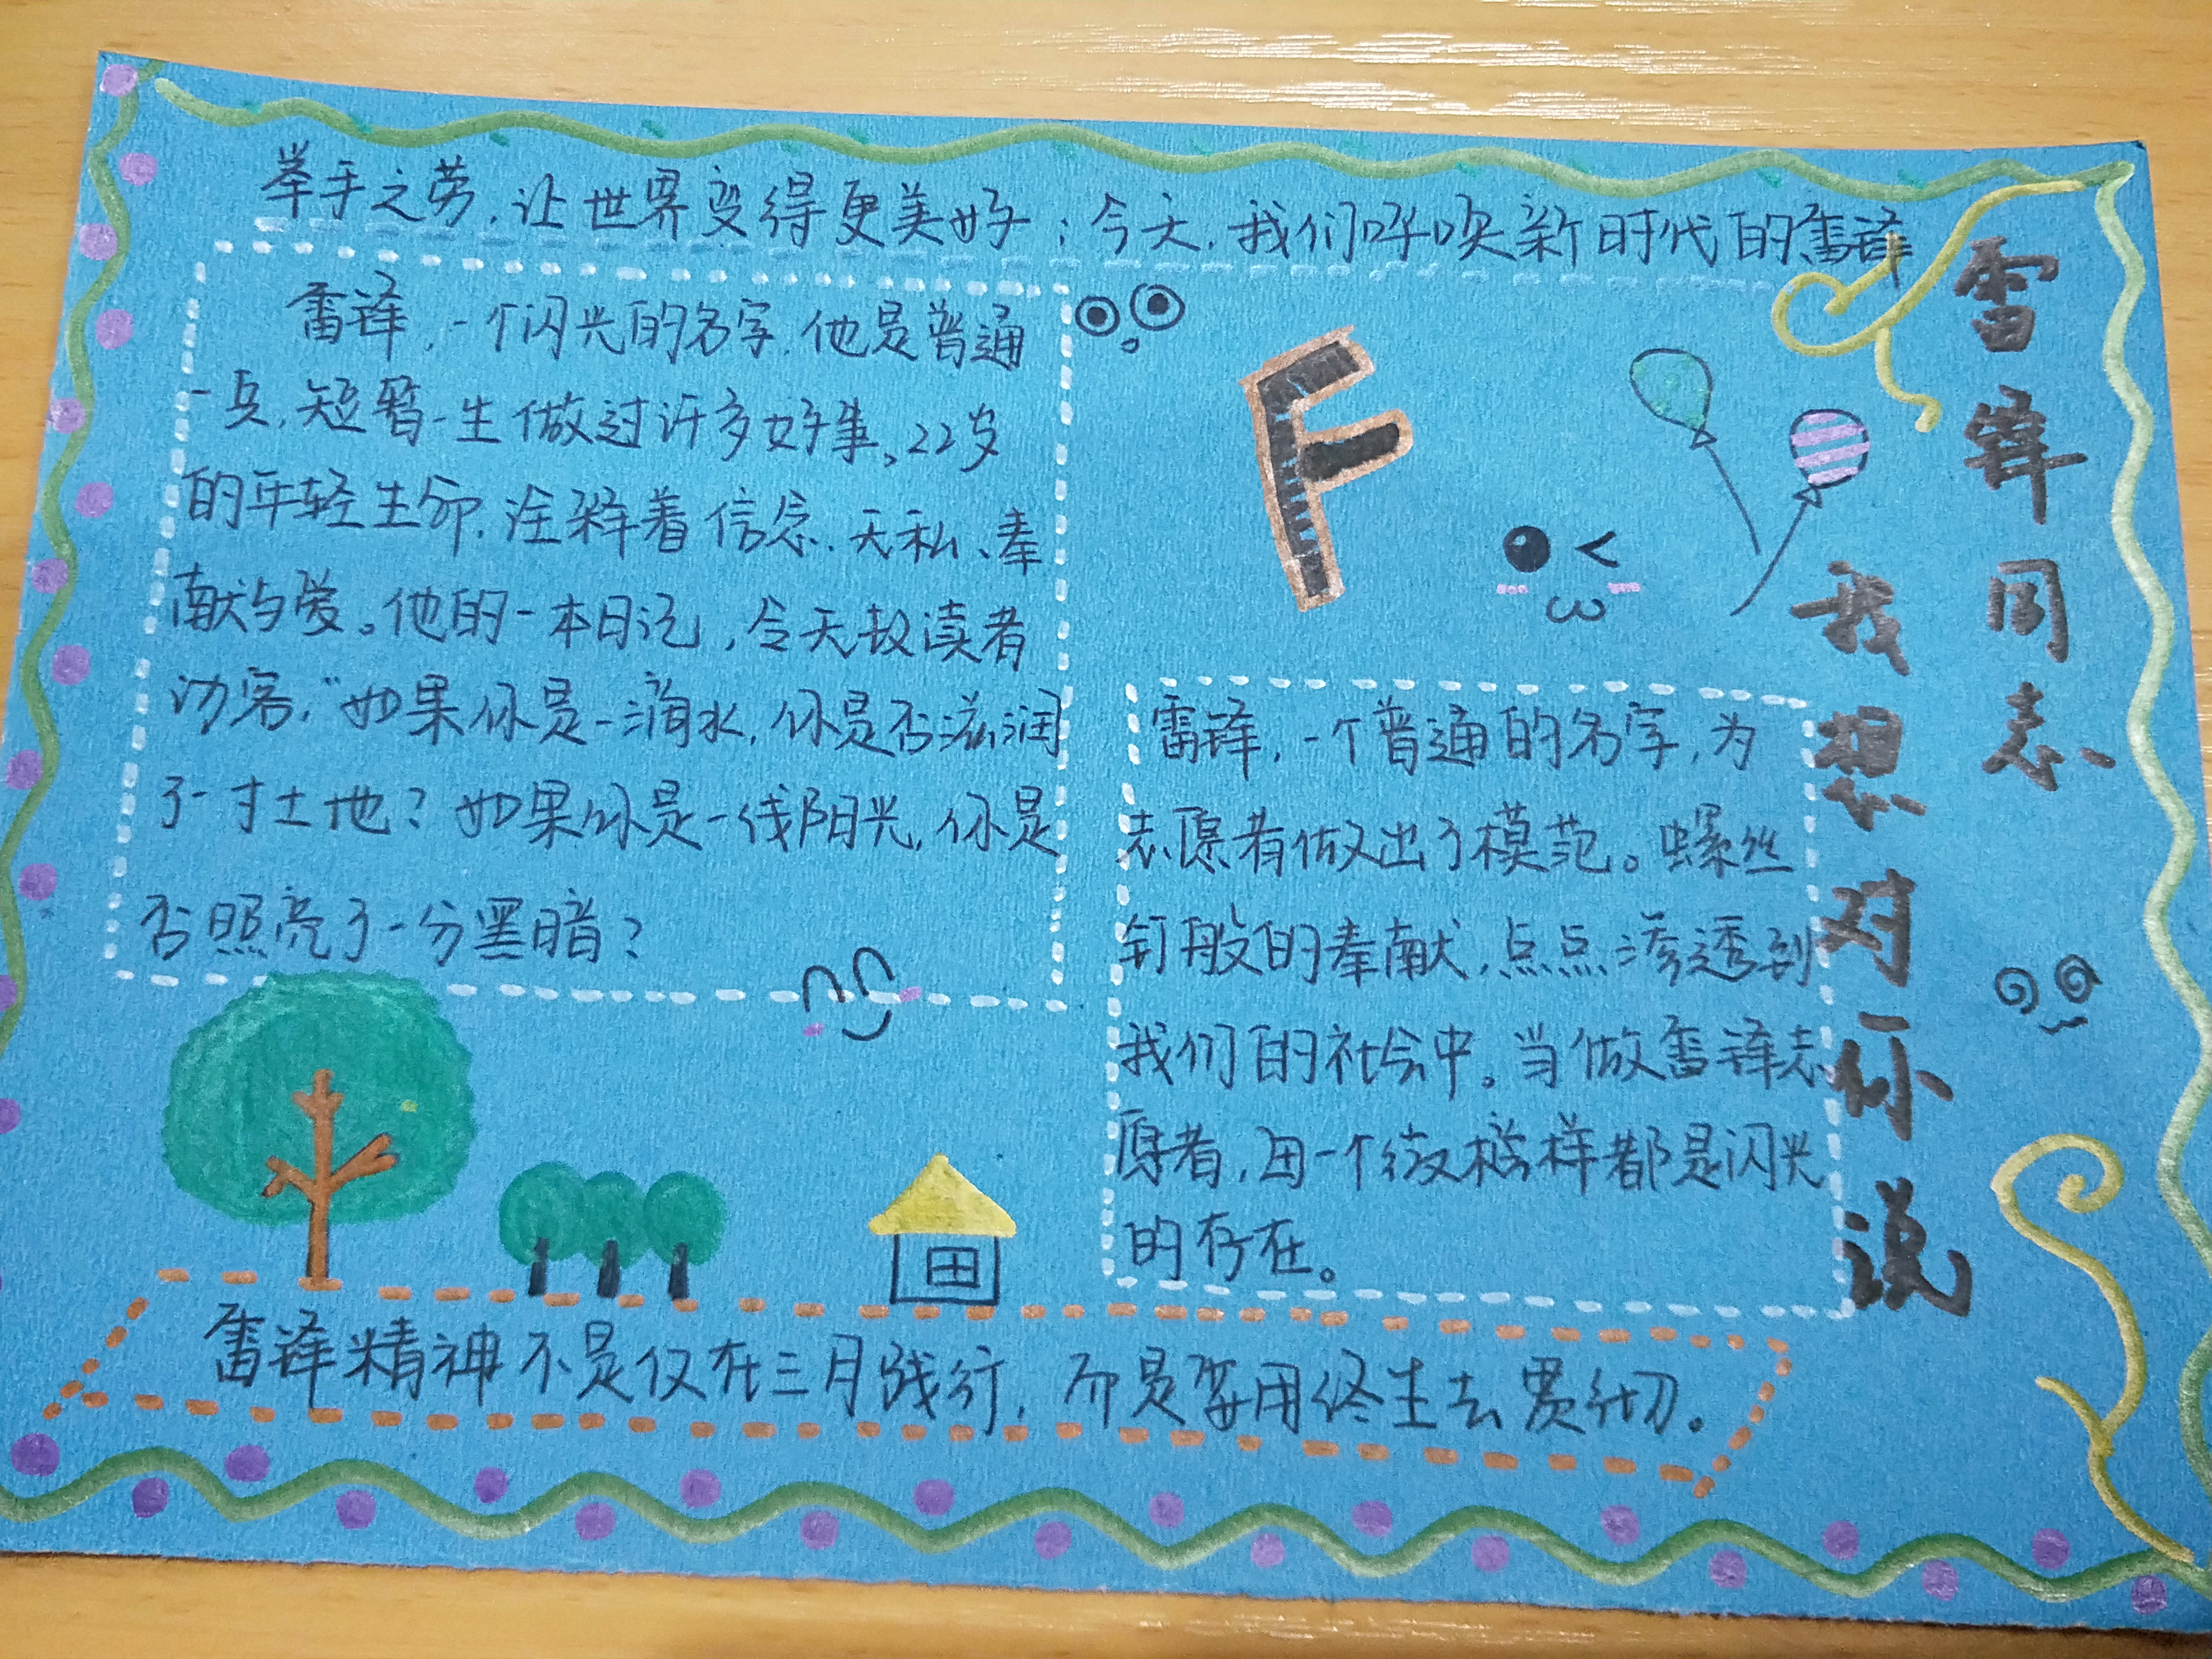 举手之劳,让世界变得更美好;今天,我们呼唤新时代的雷锋
雷锋同志
我想对你说
雷锋,一个闪光的名字,他是普通
一兵,短暂一生做过许多好事、22岁
的年轻生命,注释着信念、无私、奉
献与爱。他的一本日记,令天放读者
访客,“如果你是一滴水,你是否滋润
了一寸土地?如果你是一线阳光,你是
否照亮了一分黑暗?
F
雷锋,一个普通的名字,为
志愿者做出了模范。螺丝
钉般的奉献,点点渗透到
我们的社会中。当做雷锋志
愿者,每一个微榜样都是闪光
的存在。
雷锋精神不是仅在三月践行,而是要用终生去贯彻。